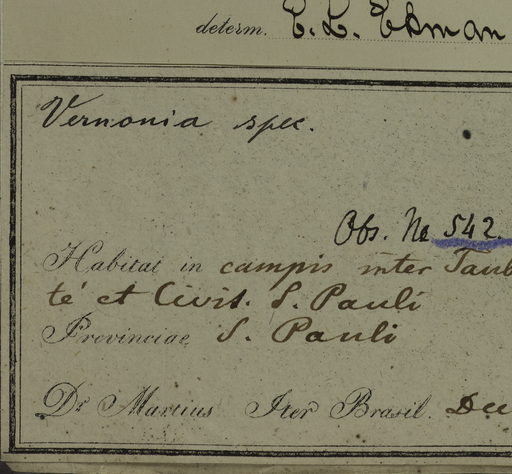 determ. E. L. Ekman
Vernonia spec.
Obs. No 542.
Habitat in campis inter Taub
té et Civit. S. Pauli
Provinciae S. Pauli
Dr Martius Iter Brasil. Dec